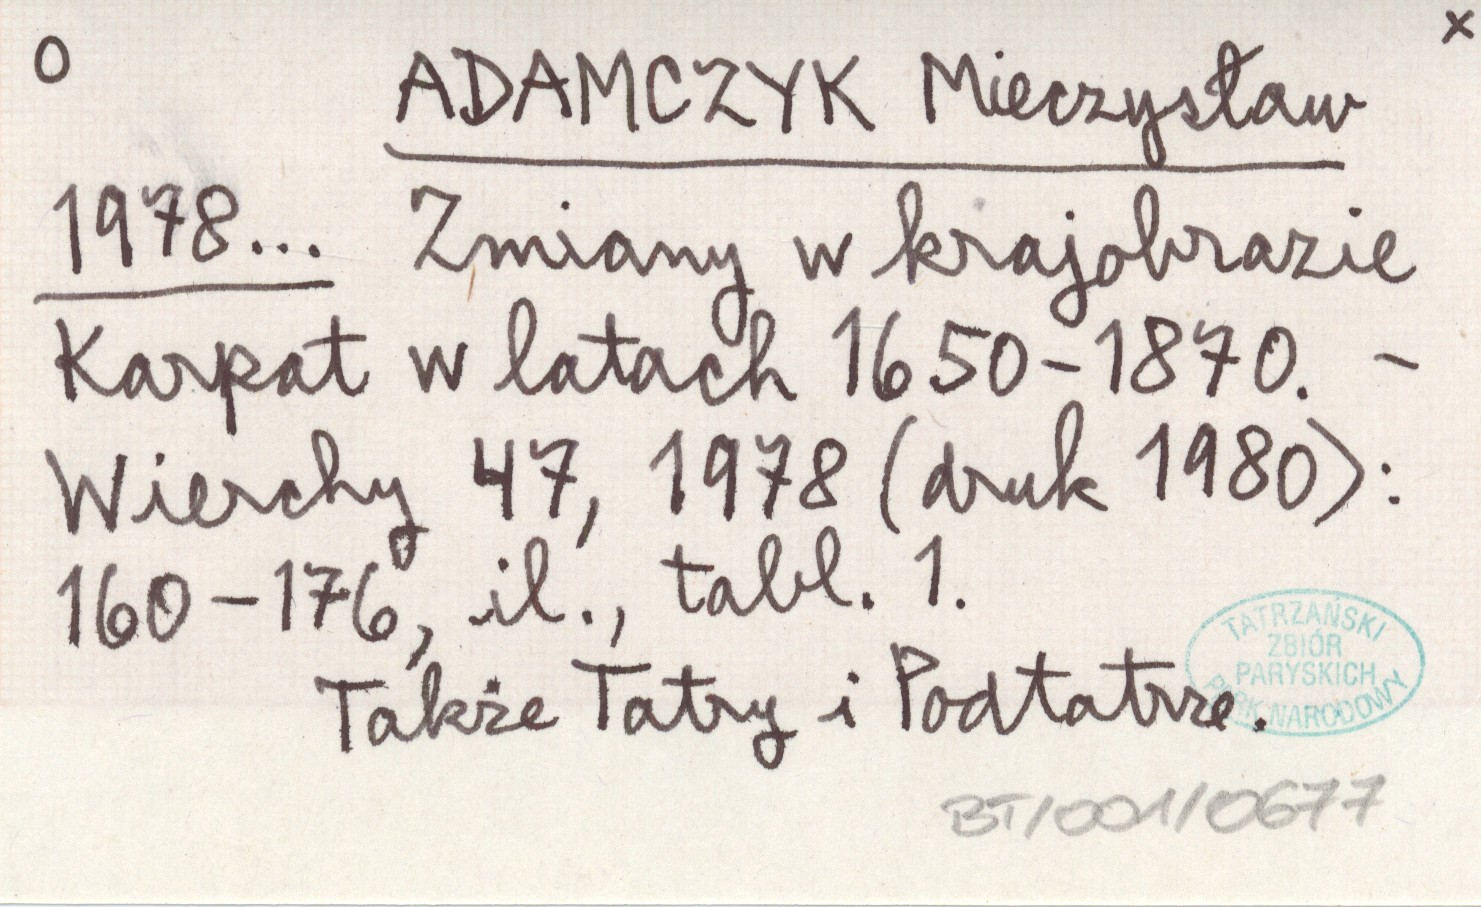 O ADAMCZYK Mieczysław x
1978... Zmiany w krajobrazie
Karpat w latach 1650-1870. -
Wierchy 47, 1978 (druk 1980):
160-176, il., tabl. 1.
Także Tatry i Podtatrze.
TATRZAŃSKI
ZBIÓR
PARYSKICH
PARK NARODOWY
BT/001/0677